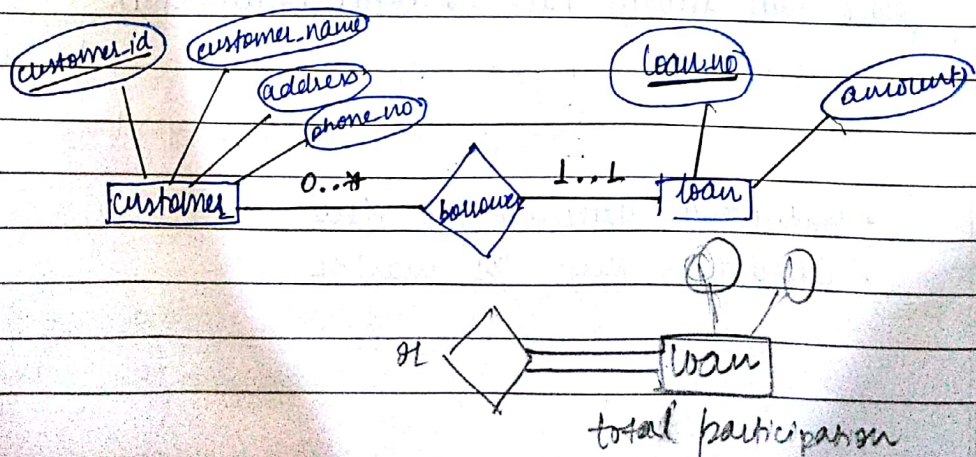 customer_id
customer_name
address
phone_no
loan_no
amount
customer
0..*
borrower
1..1
loan
loan
total participation